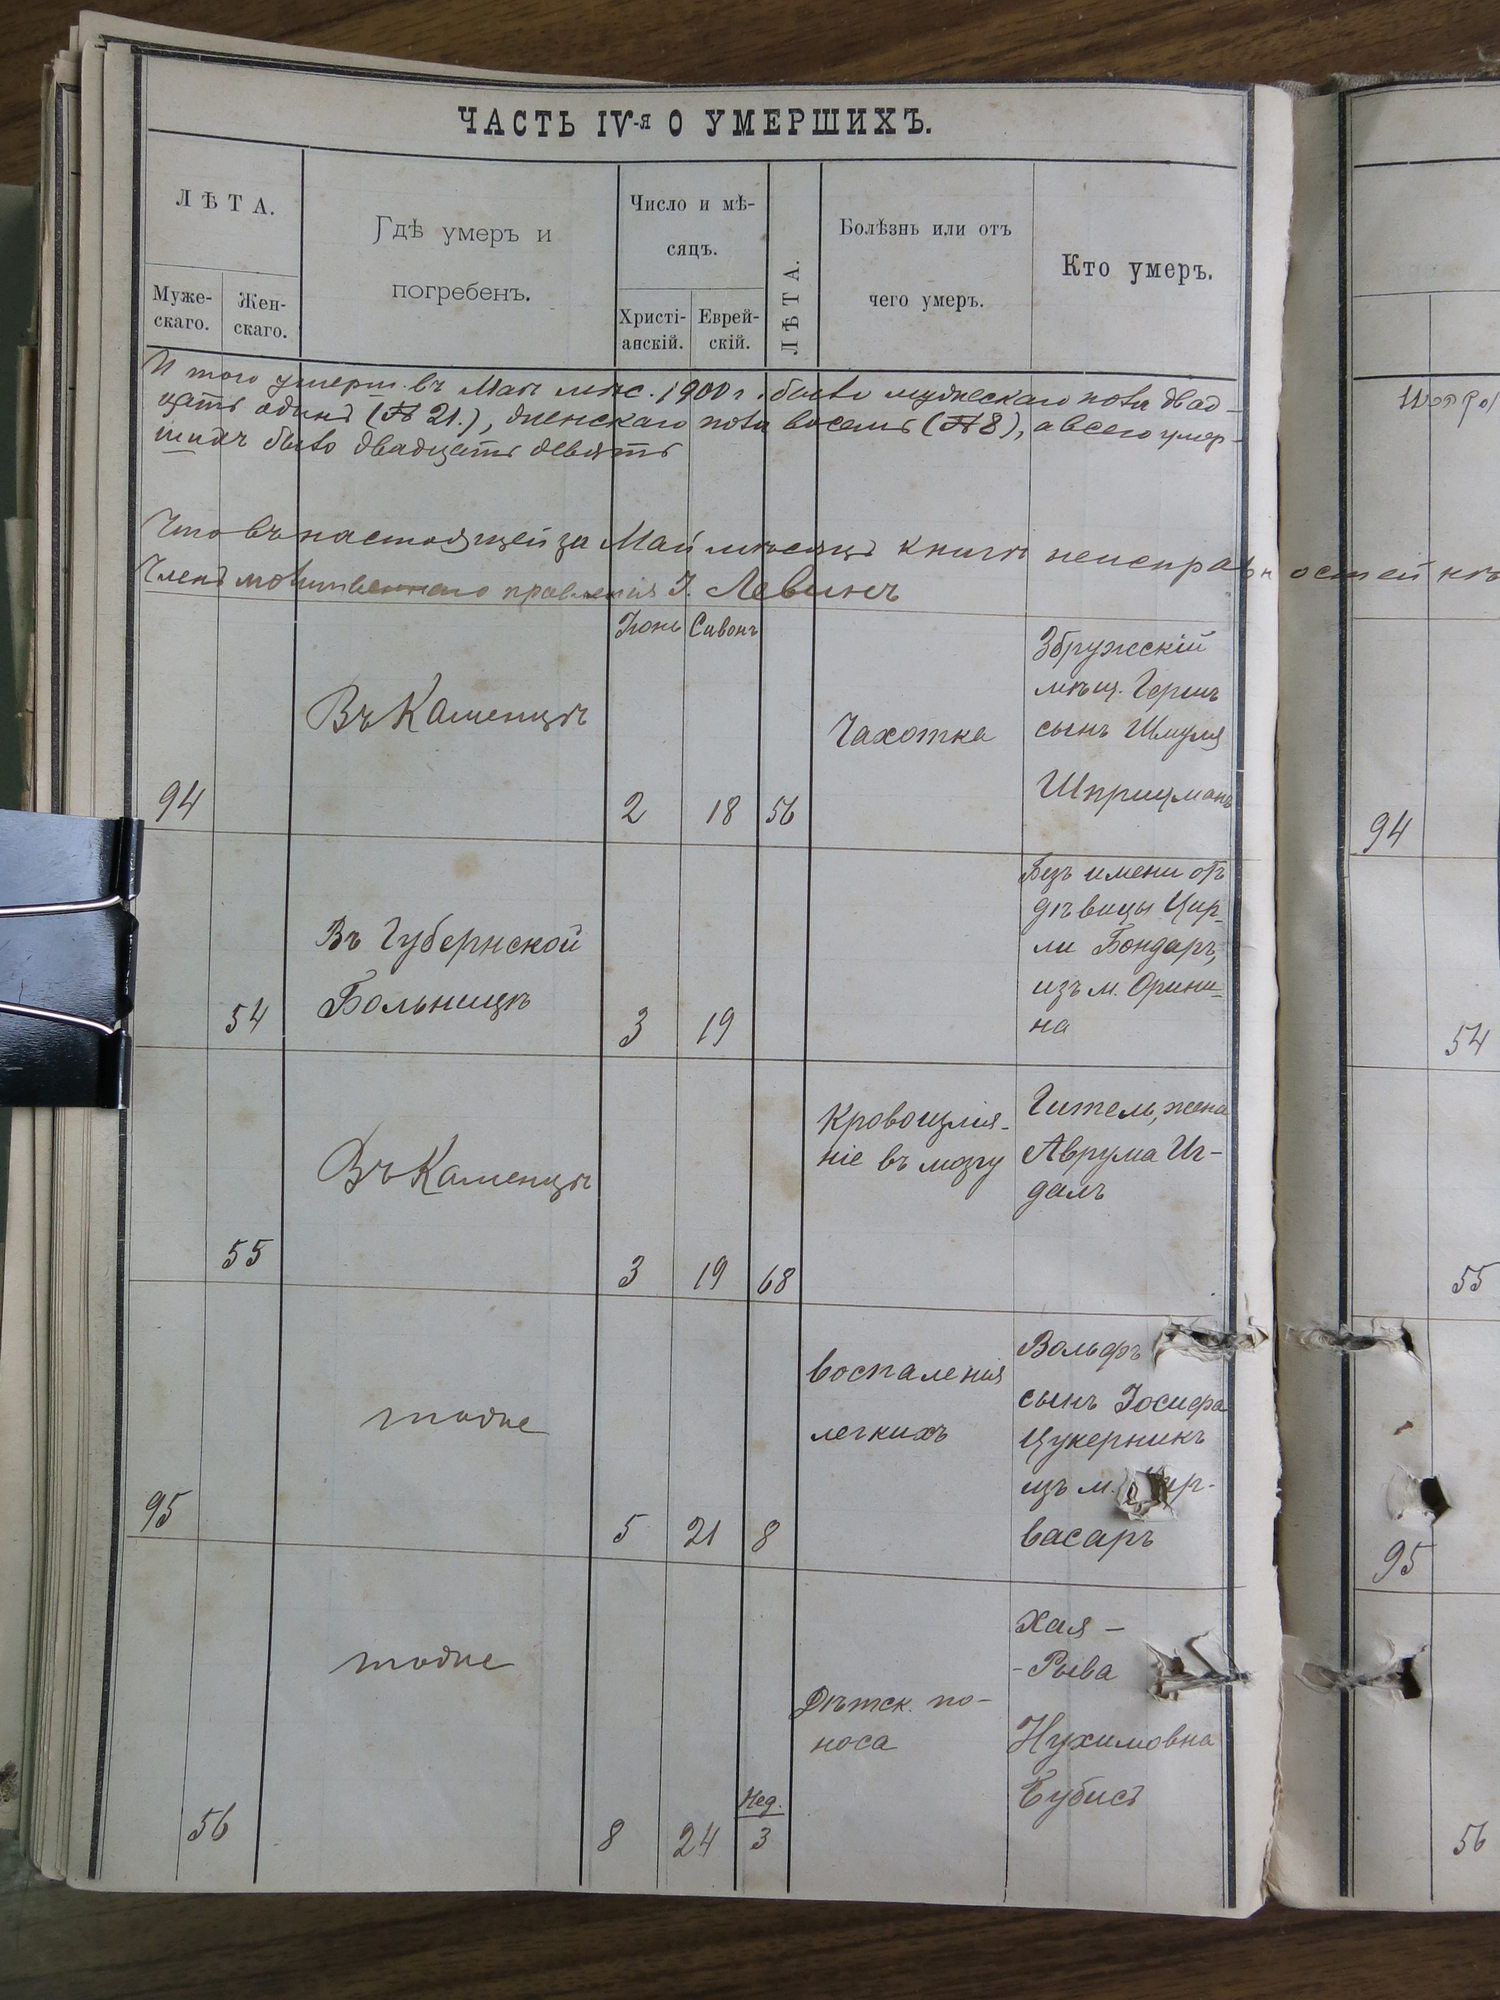 ЧАСТЬ IV-я О УМЕРШИХЪ.
ЛѢТА.
Муже-
скаго.
Жен-
скаго.
Гдѣ умеръ и
погребенъ.
Число и мѣ-
сяцъ.
Христі-
анскій.
Еврей-
скій.
ЛѢТА.
Болѣзнь или отъ
чего умеръ.
Кто умеръ.
И того умерш. въ Маѣ мѣс. 1900 г. было мужескаго пола двад-
цать одинъ (№ 21.), женскаго пола восемь (№ 8), а всего умер-
шихъ было двадцать девять
Что въ настоящей за Май мѣсяцъ книги неисправностей нѣтъ
Членъ молитвеннаго правленія І. Левинъ
Іюнь Сивонъ
94
Въ Каменцѣ
2 18 56
Чахотка
Збружскій
мѣщ. Гершъ
сынъ Шмуля
Шприцманъ
94
54
Въ Губернской
Больницѣ
3 19
Безъ имени отъ
дѣвицы Цир-
ли Бондаръ,
изъ м. Орини-
на
54
55
Въ Каменцѣ
3 19 68
Кровоизлія-
ніе въ мозгу
Гитель, жена
Аврума Иг-
даль
55
95
тоже
5 21 8
воспаленія
легкихъ
Вольфъ
сынъ Іосифа
Цукерникъ
изъ м.
васаръ
95
56
тоже
8 24
Нед.
3
Дѣтск. по-
носа
Хая -
- Рыва
Нухимовна
Бубисъ
56